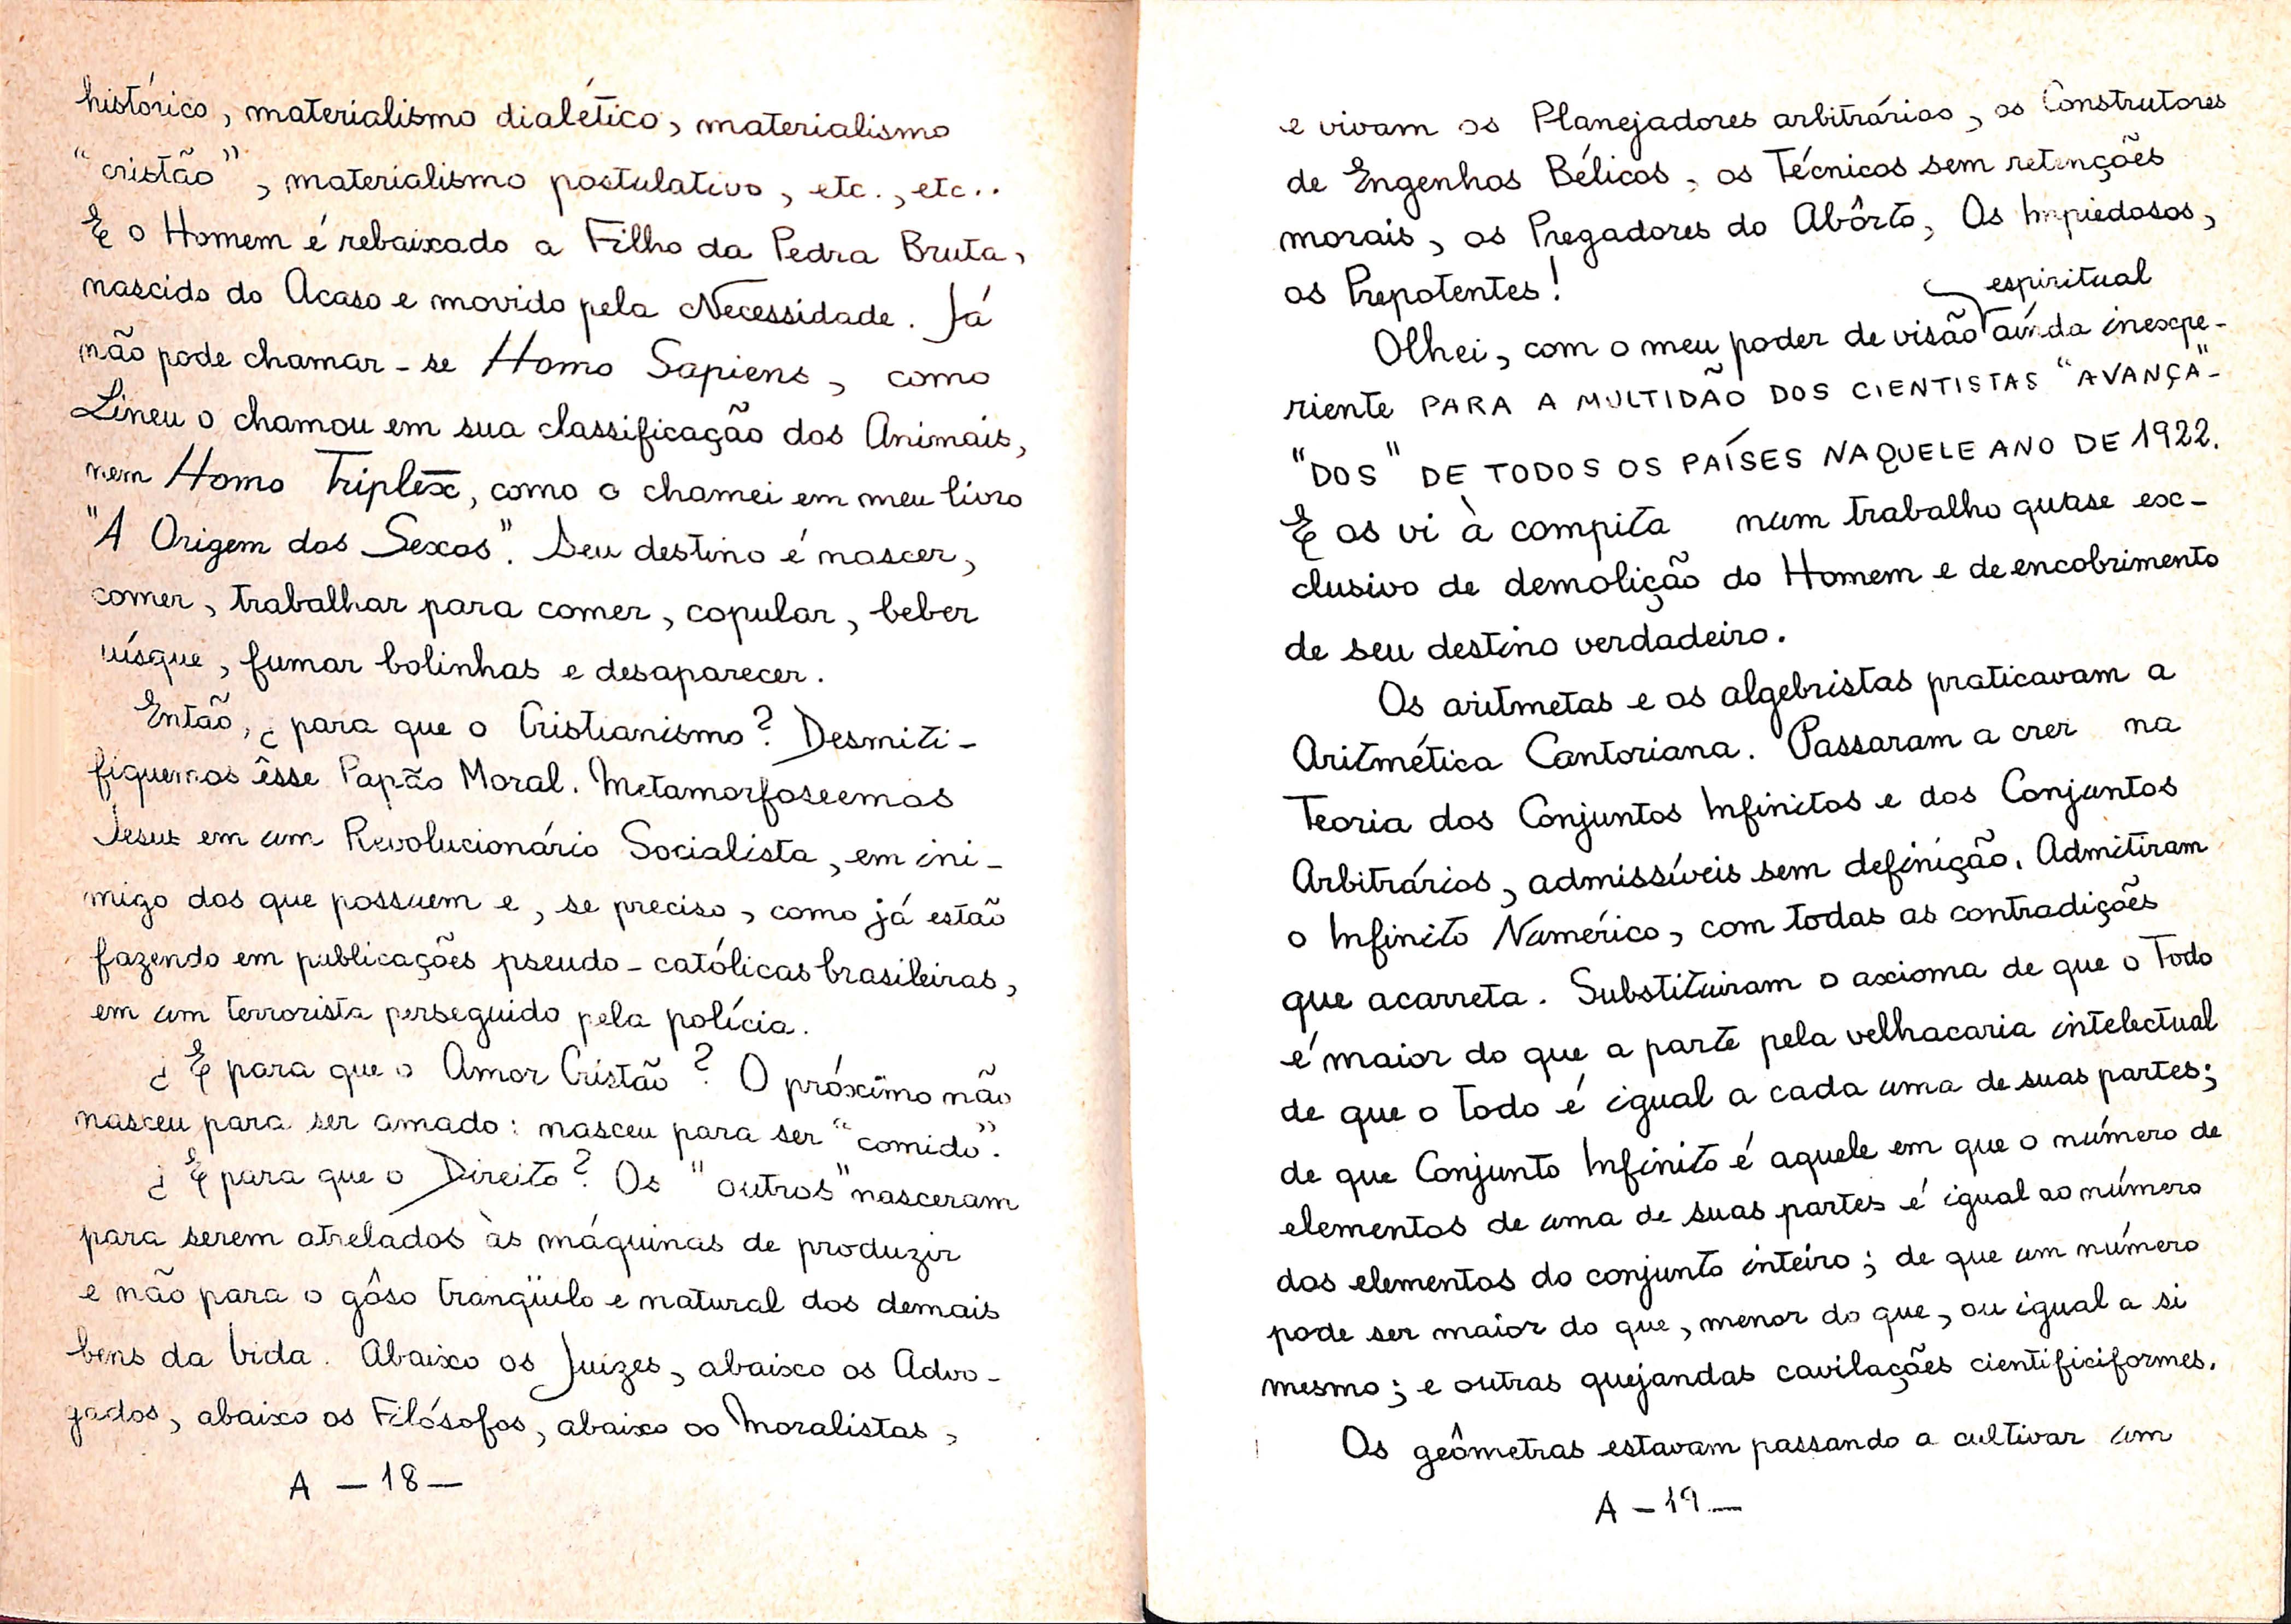 histórico, materialismo dialético, materialismo
"cristão", materialismo postulativo, etc., etc..
E o Homem é rebaixado a Filho da Pedra Bruta,
nascido do Acaso e movido pela Necessidade. Já
não pode chamar-se Homo Sapiens, como
Lineu o chamou em sua classificação dos Animais,
nem Homo Triplex, como o chamei em meu livro
"A Origem dos Sexos". Seu destino é nascer,
comer, trabalhar para comer, copular, beber
uísque, fumar bolinhas e desaparecer.
Então, ¿ para que o Cristianismo? Desmiti-
fiquemos êsse Papão Moral. Metamorfoseemos
Jesus em um Revolucionário Socialista, em ini-
migo dos que possuem e, se preciso, como já estão
fazendo em publicações pseudo-católicas brasileiras,
em um terrorista perseguido pela polícia.
¿ E para que o Amor Cristão? O próximo não
nasceu para ser amado: nasceu para ser "comido".
¿ E para que o Direito? Os "outros" nasceram
para serem atrelados às máquinas de produzir
e não para o gôso tranqüilo e natural dos demais
bens da Vida. Abaixo os Juízes, abaixo os Advo-
gados, abaixo os Filósofos, abaixo os Moralistas,
A — 18 —
e vivam os Planejadores arbitrários, os Construtores
de Engenhos Bélicos, os Técnicos sem retenções
morais, os Pregadores do Abôrto, Os Impiedosos,
os Prepotentes!
espiritual
Olhei, com o meu poder de visão ainda inexpe-
riente PARA A MULTIDÃO DOS CIENTISTAS "AVANÇA"-
"DOS" DE TODOS OS PAÍSES NAQUELE ANO DE 1922.
E os vi à compita num trabalho quase ex-
clusivo de demolição do Homem e de encobrimento
de seu destino verdadeiro.
Os aritmetas e os algebristas praticavam a
Aritmética Cantoriana. Passaram a crer na
Teoria dos Conjuntos Infinitos e dos Conjuntos
Arbitrários, admissíveis sem definição. Admitiram
o Infinito Numérico, com todas as contradições
que acarreta. Substituiram o axioma de que o Todo
é maior do que a parte pela velhacaria intelectual
de que o todo é igual a cada uma de suas partes;
de que Conjunto Infinito é aquele em que o número de
elementos de uma de suas partes é igual ao número
dos elementos do conjunto inteiro; de que um número
pode ser maior do que, menor do que, ou igual a si
mesmo; e outras quejandas cavilações cientificiformes.
Os geômetras estavam passando a cultivar um
A — 19 —